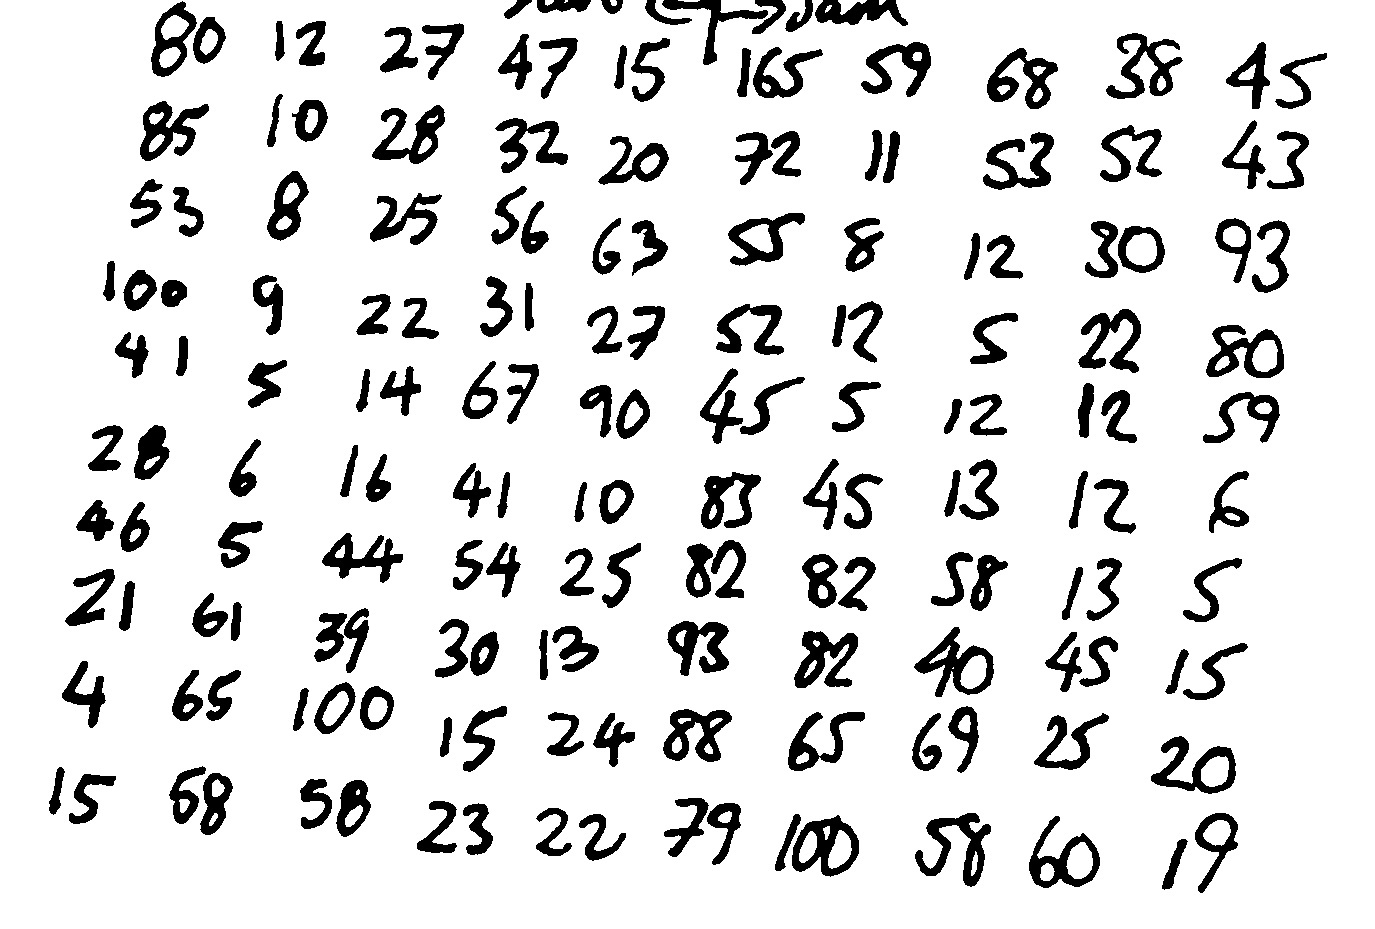 Sam
80 12 27 47 15 165 59 68 38 45
85 10 28 32 20 72 11 53 52 43
53 8 25 56 63 55 8 12 30 93
100 9 22 31 27 52 12 5 22 80
41 5 14 67 90 45 5 12 12 59
28 6 16 41 10 83 45 13 12 6
46 5 44 54 25 82 82 58 13 5
21 61 39 30 13 93 82 40 45 15
4 65 100 15 24 88 65 69 25 20
15 68 58 23 22 79 100 58 60 19